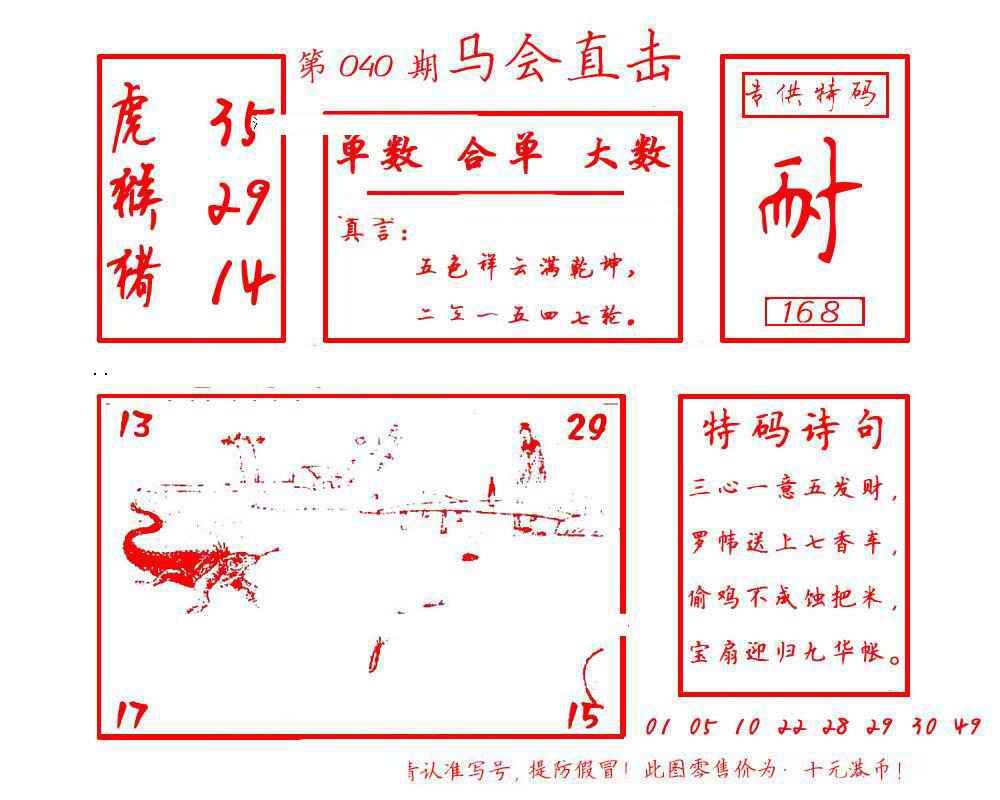 第 040 期 马会直击
虎 35
猴 29
猪 14
单数 合单 大数
真言：
五色祥云满乾坤，
二三一五四七轮。
专供特码
耐
168
13
29
17
15
特码诗句
三心一意五发财，
罗帏送上七香车，
偷鸡不成蚀把米，
宝扇迎归九华帐。
01 05 10 22 28 29 30 49
请认准写号，提防假冒！此图零售价为·十元港币！